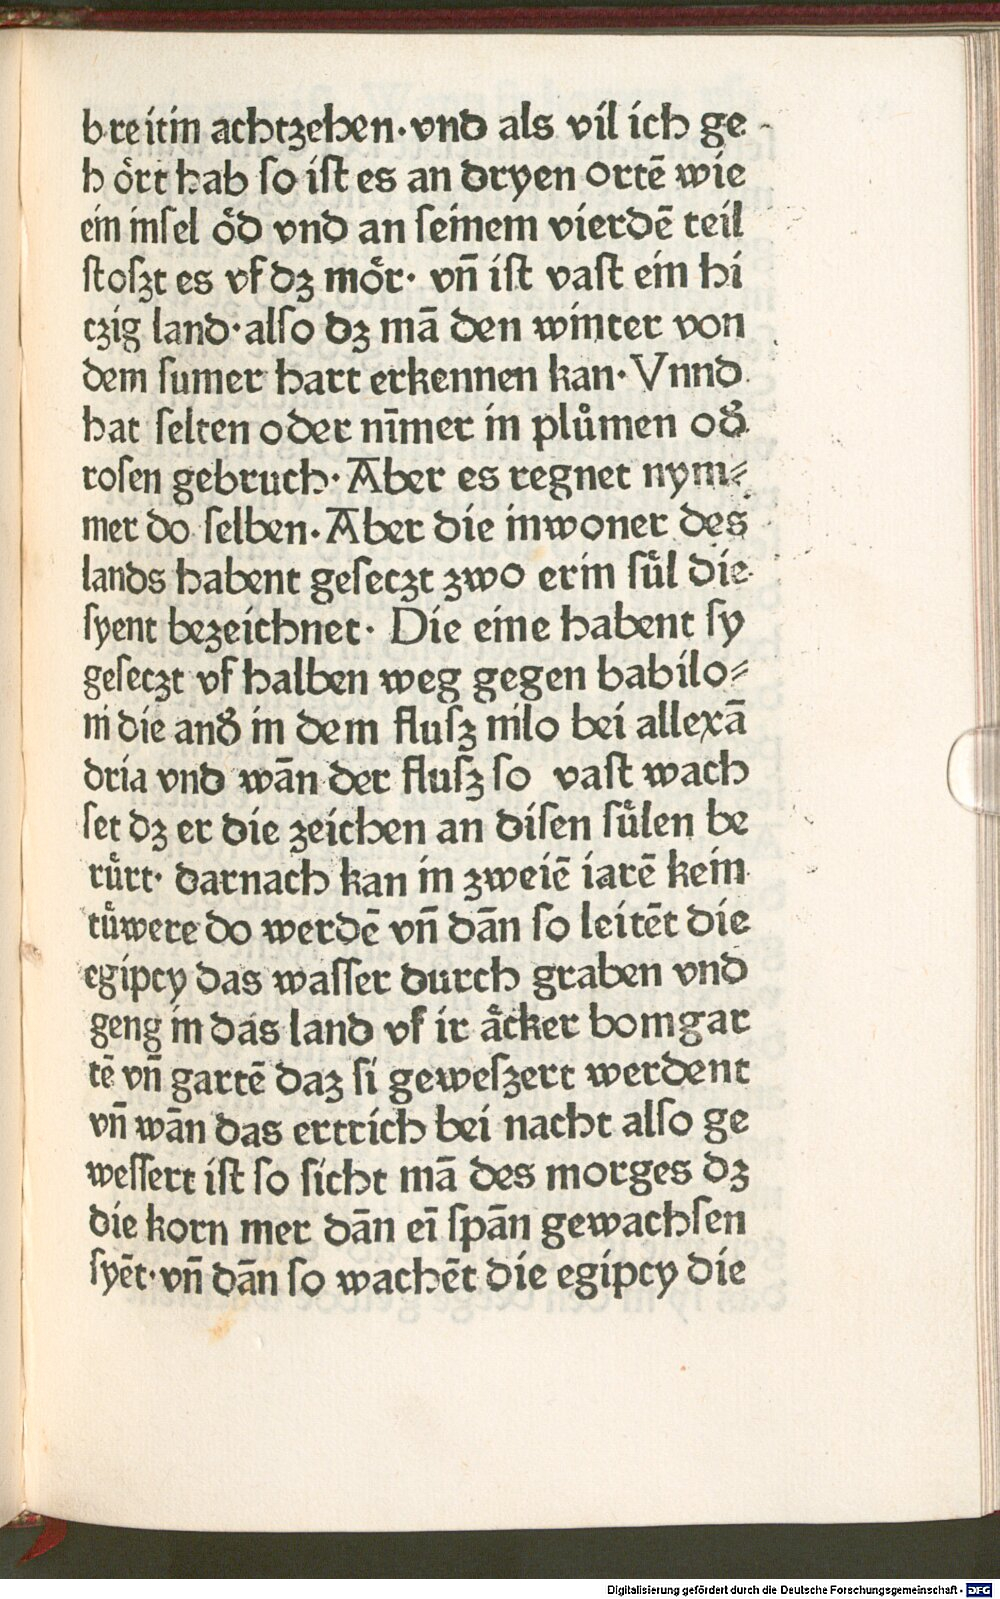 breitin achtzehen·vnd als vil ich ge
hoͤrt hab so ist es an dryen ortē wie
ein insel oͤd vnd an seinem vierdē teil
stoſzt es vf dꝫ moͤr· vn̄ ist vast ein hi
tzig land·also dꝫ mā den winter von
dem sumer hart erkennen kan· Vnnd
hat selten oder nīmer in pluͦmen oď
rosen gebruch· Aber es regnet nym⸗
mer do selben. Aber die inwoner des
lands habent gesetzt zwo erin suͤl die
syent bezeichnet· Die eine habent sy
gesetzt vf halben weg gegen babilo⸗
ni die anď in dem flusz nilo bei allexā
dria vnd wān der flusz so vast wach
set dꝫ er die zeichen an disen suͤlen be
ruͤrt· darnach kan in zweiē iarē kein
tuͤwere do werdē vn̄ dān so leitēt die
egipcy das wasser durch graben vnd
geng in das land vf ir aͤcker bomgar
tē vn̄ gartē daz si geweszert werdent
vn̄ wān das ertrich bei nacht also ge
wessert ist so sicht mā des morges dꝫ
die korn mer dān eī spān gewachsen
syēt·vn̄ dān so wachēt die egipcy die
Digitalisierung gefördert durch die Deutsche Forschungsgemeinschaft - DFG